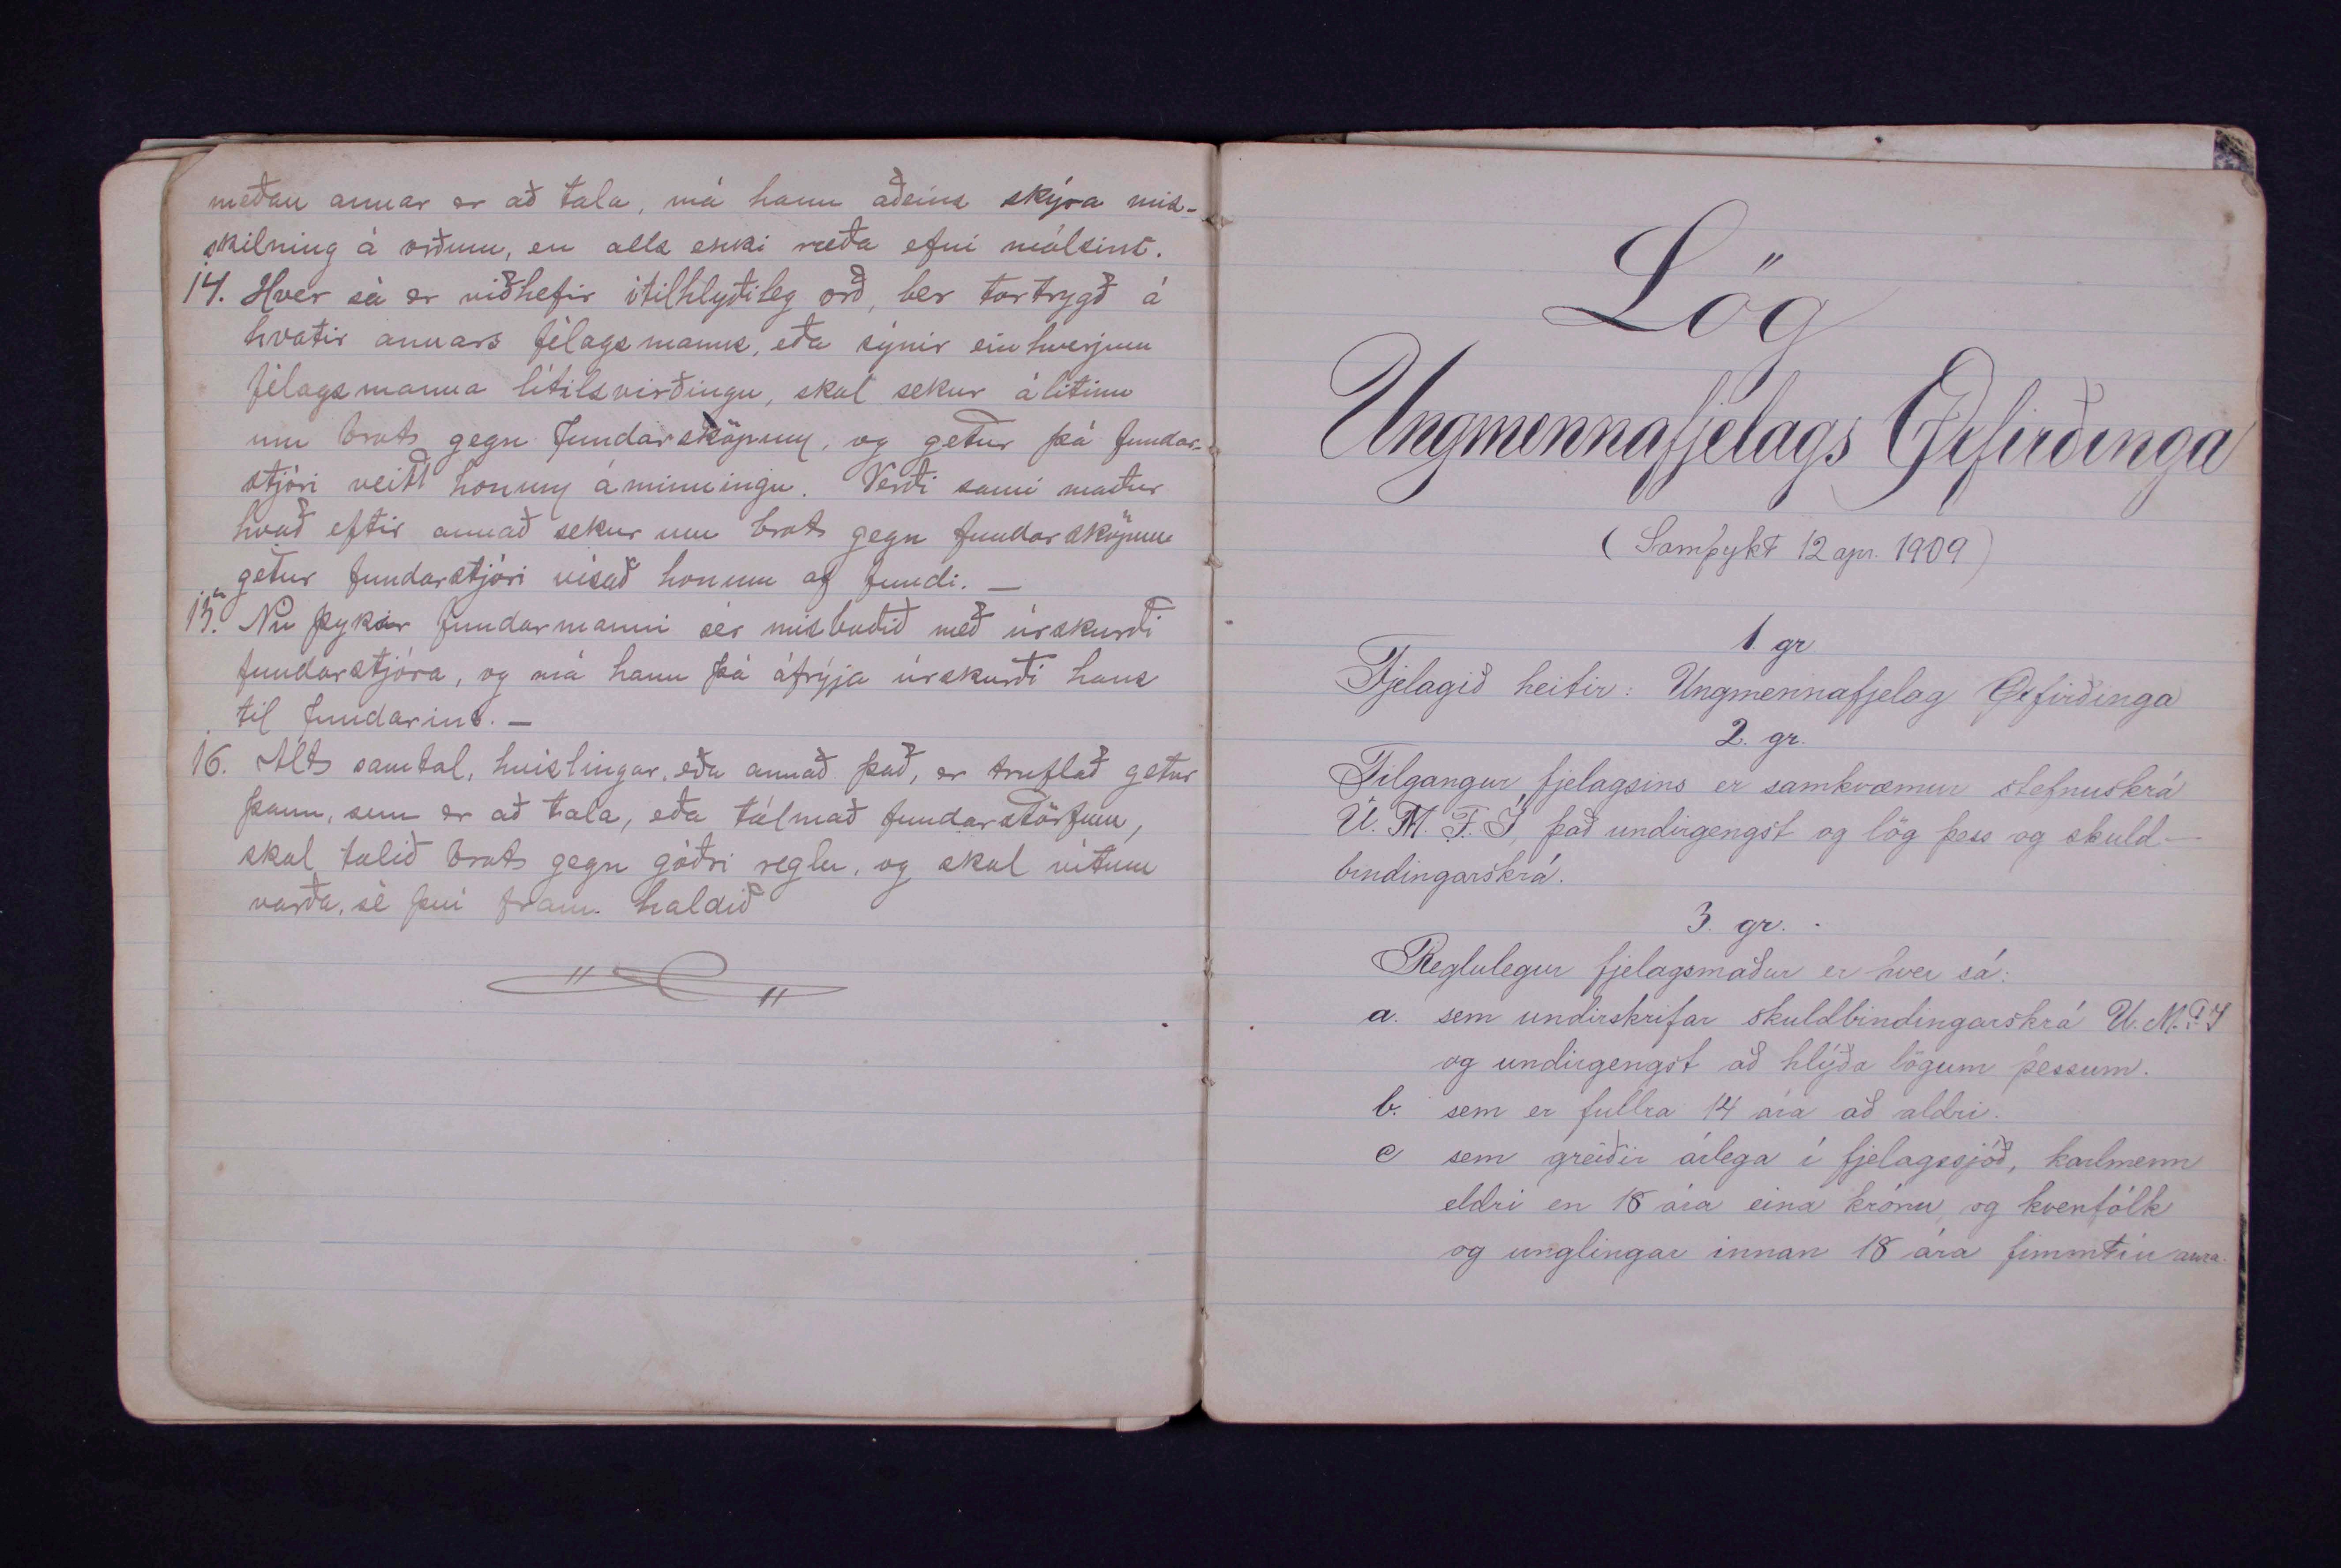 meðan annar er að tala, má hann aðeins skýra mis-
skilning á orðum, en alls ekki ræða efni málsins.
14. Hver sá er viðhefir ótilhlýðileg orð, ber tortrygð á
hvatir annars félagsmanns, eða sýnir einhverjum
félagsmanna lítilsvirðingu, skal sekur álitinn
um brot gegn fundarsköpum, og getur þá fundar-
stjóri veitt honum áminningu. Verði sami maður
hvað eftir annað sekur um brot gegn fundarsköpum
getur fundarstjóri vísað honum af fundi. —
15. Nú þykir fundarmanni sér misboðið með úrskurði
fundarstjóra, og má hann þá áfrýja úrskurði hans
til fundarins. —
16. Alt samtal, hvislingar, eða annað það, er truflað getur
þann, sem er að tala, eða tálmað fundarstörfum,
skal talið brot gegn góðri reglu, og skal vítum
varða, sé því fram haldið
Lög
Ungmennafjelags Önfirðinga
(Samþykt 12 apr. 1909)
1. gr
Fjelagið heitir: Ungmennafjelag Önfirðinga
2. gr.
Tilgangur fjelagsins er samkvæmur stefnuskrá
U. M. F. Í, það undirgengst og lög þess og skuld-
bindingarskrá.
3. gr.
Reglulegur fjelagsmaður er hver sá:
a. sem undirskrifar skuldbindingarskrá U. M. F. Í
og undirgengst að hlýða lögum þessum.
b. sem er fullra 14 ára að aldri.
c sem greiðir árlega í fjelagssjóð, karlmenn
eldri en 18 ára eina krónu og kvenfólk
og unglingar innan 18 ára fimmtíu aura.